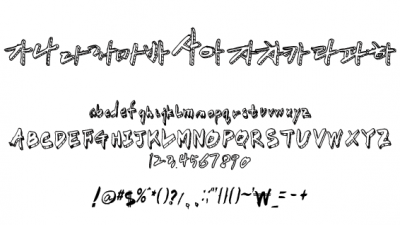 가나다라마바사아자차카타파하
abcdefghijklmnopqrstuvwxyz
ABCDEFGHIJKLMNOPQRSTUVWXYZ
1234567890
!@#$%^*()?/,.;:'"|{}()~`₩_=-+